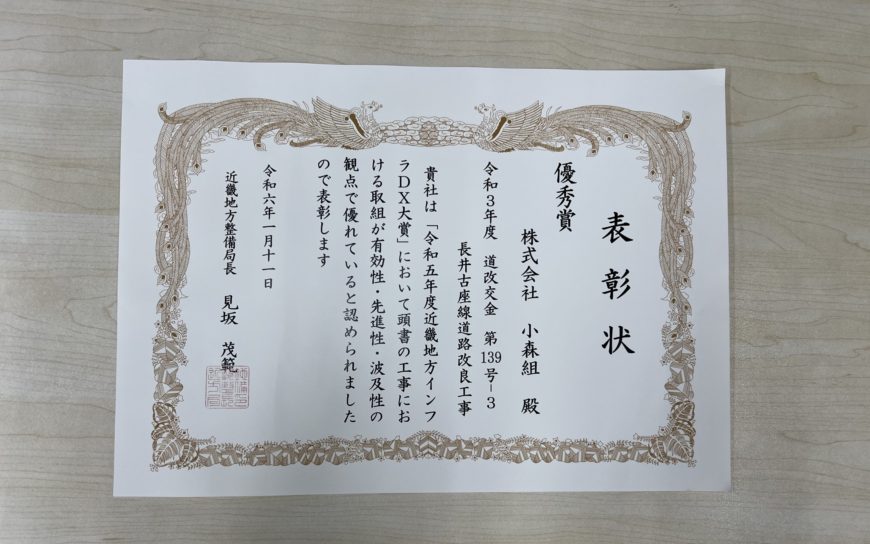 表彰状
優秀賞
株式会社 小森組 殿
令和３年度 道改交金 第139号－３
長井古座線道路改良工事
貴社は「令和五年度近畿地方インフ
ラＤＸ大賞」において頭書の工事にお
ける取組が有効性・先進性・波及性の
観点で優れていると認められました
ので表彰します
令和六年一月十一日
近畿地方整備局長 見坂 茂範